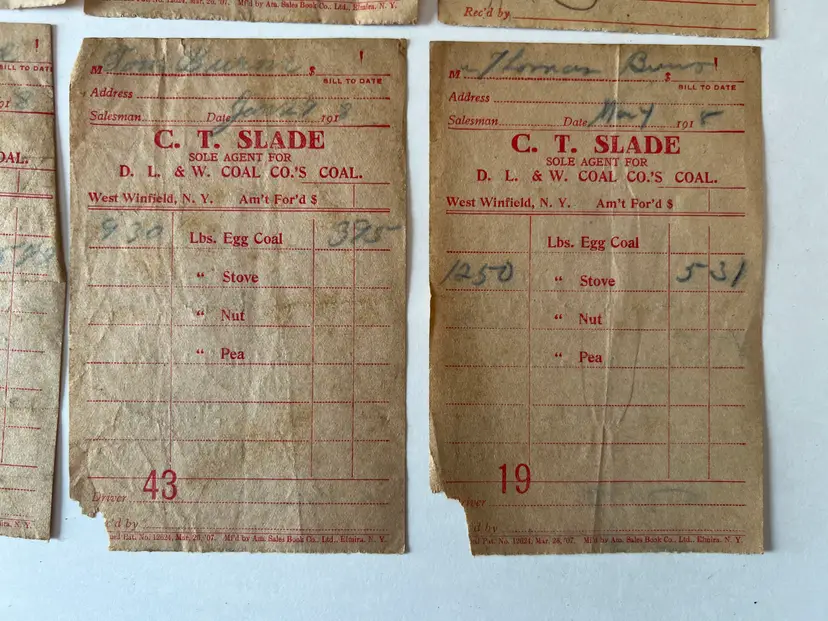 Pat. No. 12624, Mar. 26, '07. M'f'd by Am. Sales Book Co., Ltd., Elmira, N. Y.
Rec'd by
BILL TO DATE
191 8
COAL.
M Tom Burns $
BILL TO DATE
Address
Salesman Date 191 8
C. T. SLADE
SOLE AGENT FOR
D. L. & W. COAL CO.'S COAL.
West Winfield, N. Y. Am't For'd $
930 Lbs. Egg Coal 395
“ Stove
“ Nut
“ Pea
Driver 43
c'd by
Pat. No. 12624, Mar. 26, '07. M'f'd by Am. Sales Book Co., Ltd., Elmira, N. Y.
M Thomas Burns $
BILL TO DATE
Address
Salesman Date May 191 8
C. T. SLADE
SOLE AGENT FOR
D. L. & W. COAL CO.'S COAL.
West Winfield, N. Y. Am't For'd $
Lbs. Egg Coal
1250 “ Stove 5 31
“ Nut
“ Pea
river 19
'd by
Pat. No. 12624, Mar. 26, '07. M'f'd by Am. Sales Book Co., Ltd., Elmira, N. Y.